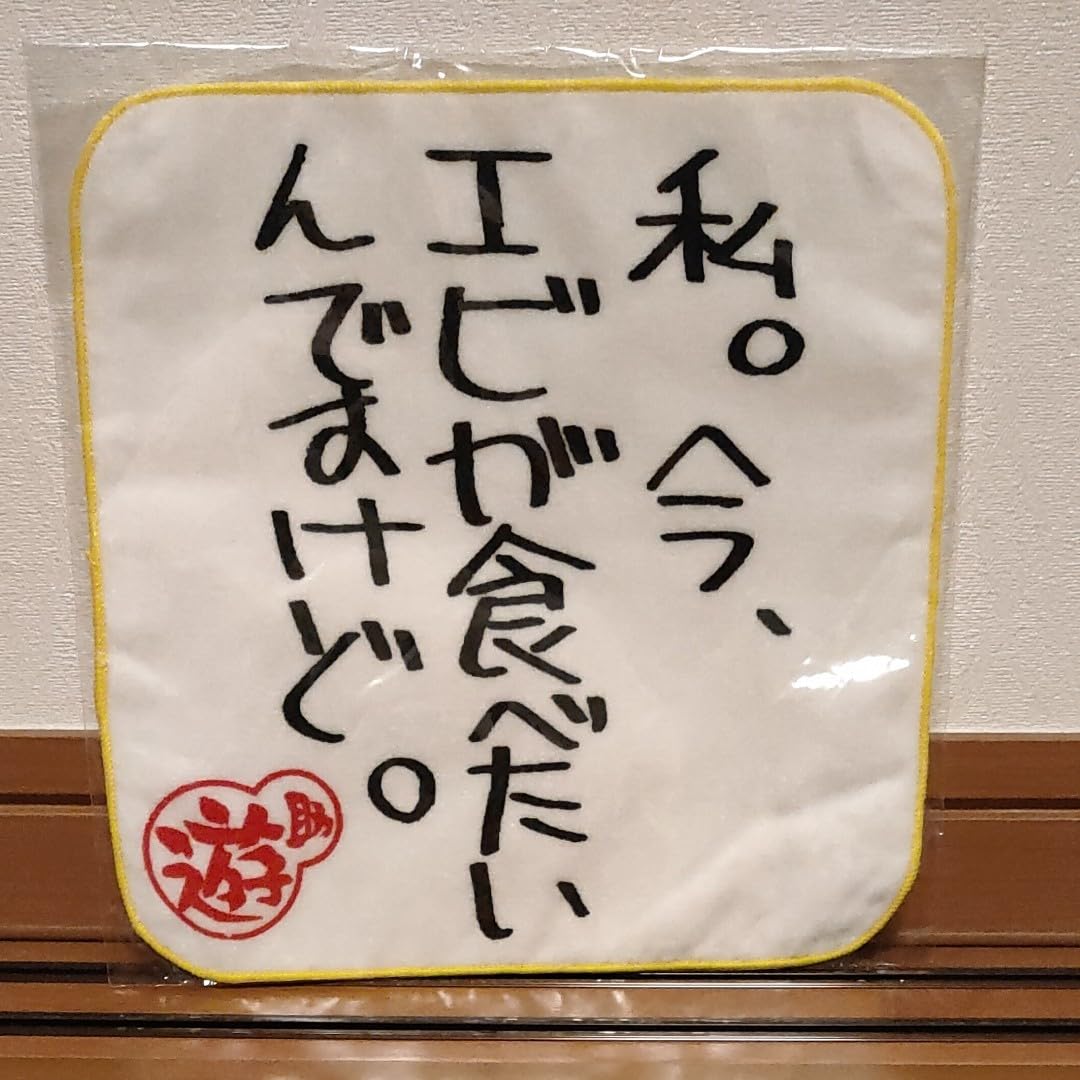 私。今、
エビが食べたい
んですけど。
遊助